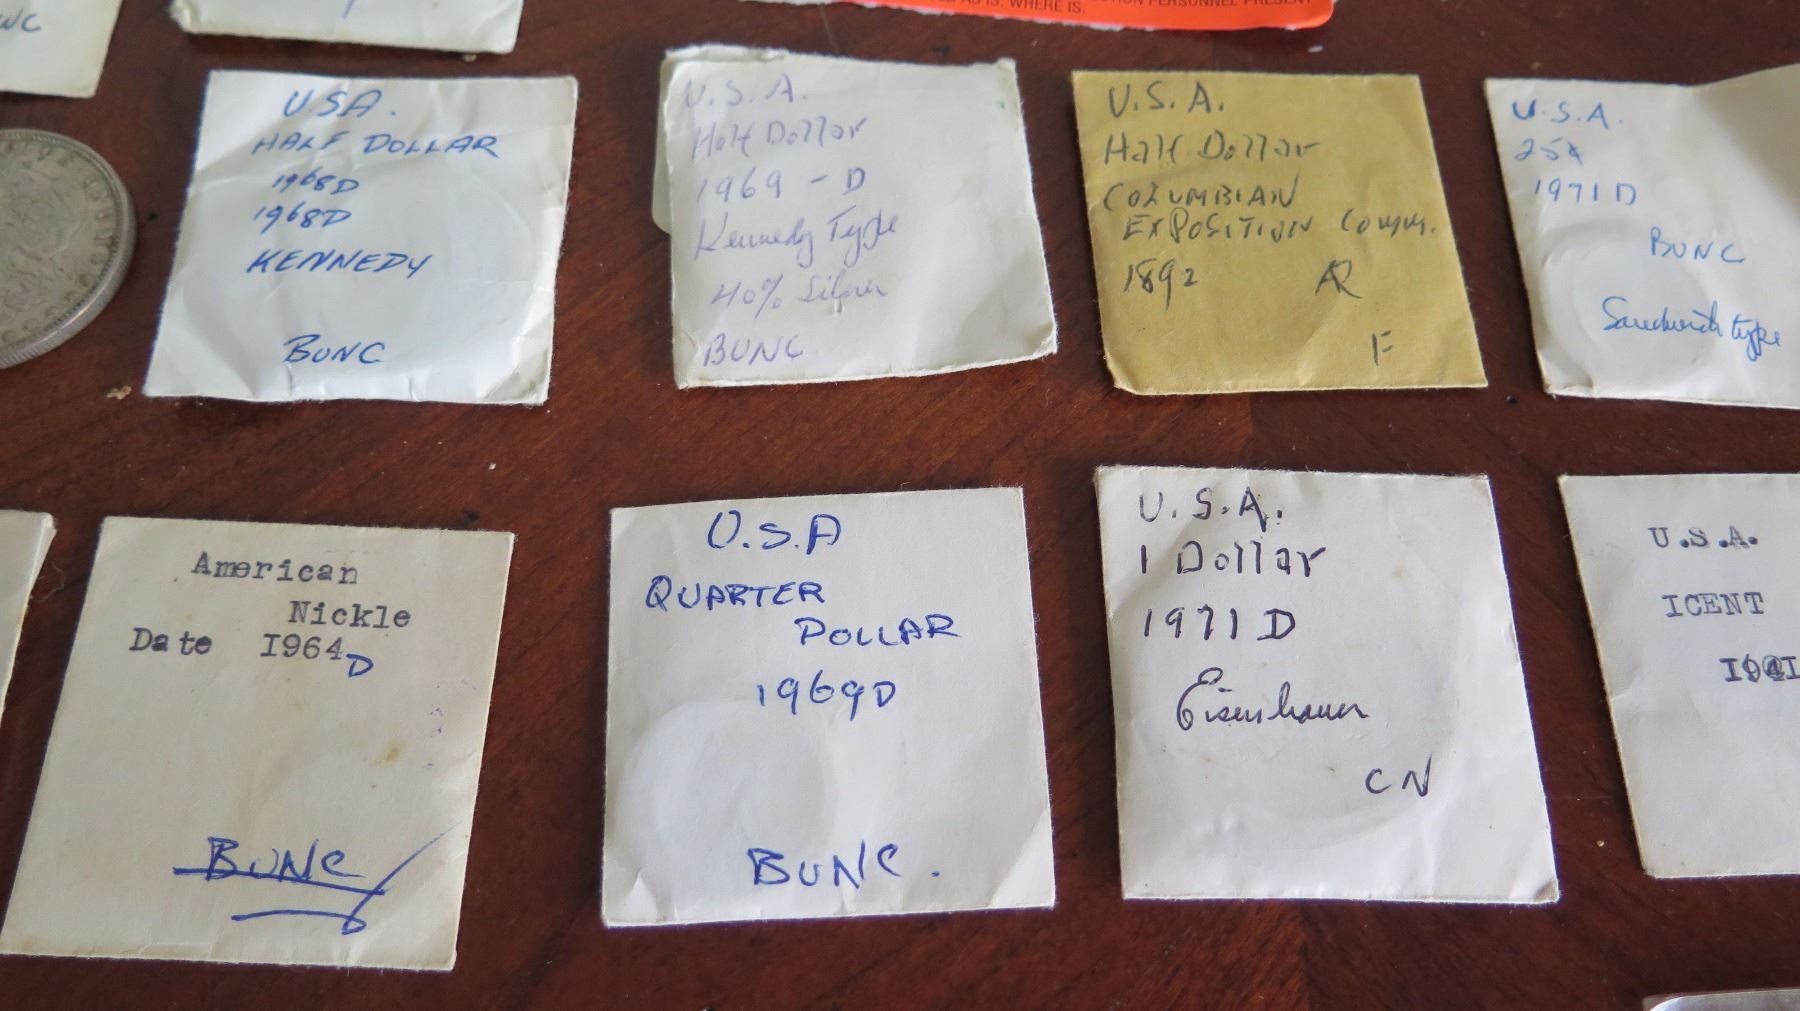 NC
AS IS. WHERE IS.
PERSONNEL PRESENT
U.S.A.
HALF DOLLAR
1968D
1968D
KENNEDY
BUNC
U.S.A.
Half Dollar
1969 - D
Kennedy Type
40% Silver
BUNC
U.S.A.
Half Dollar
COLUMBIAN
EXPOSITION Comm.
1892 AR
F
U.S.A.
25¢
1971D
BUNC
Sandwich type
American
Nickle
Date I964D
BUNC
U.S.A
QUARTER
DOLLAR
1969D
BUNC.
U.S.A.
1 Dollar
1971D
Eisenhower
CN
U.S.A.
ICENT